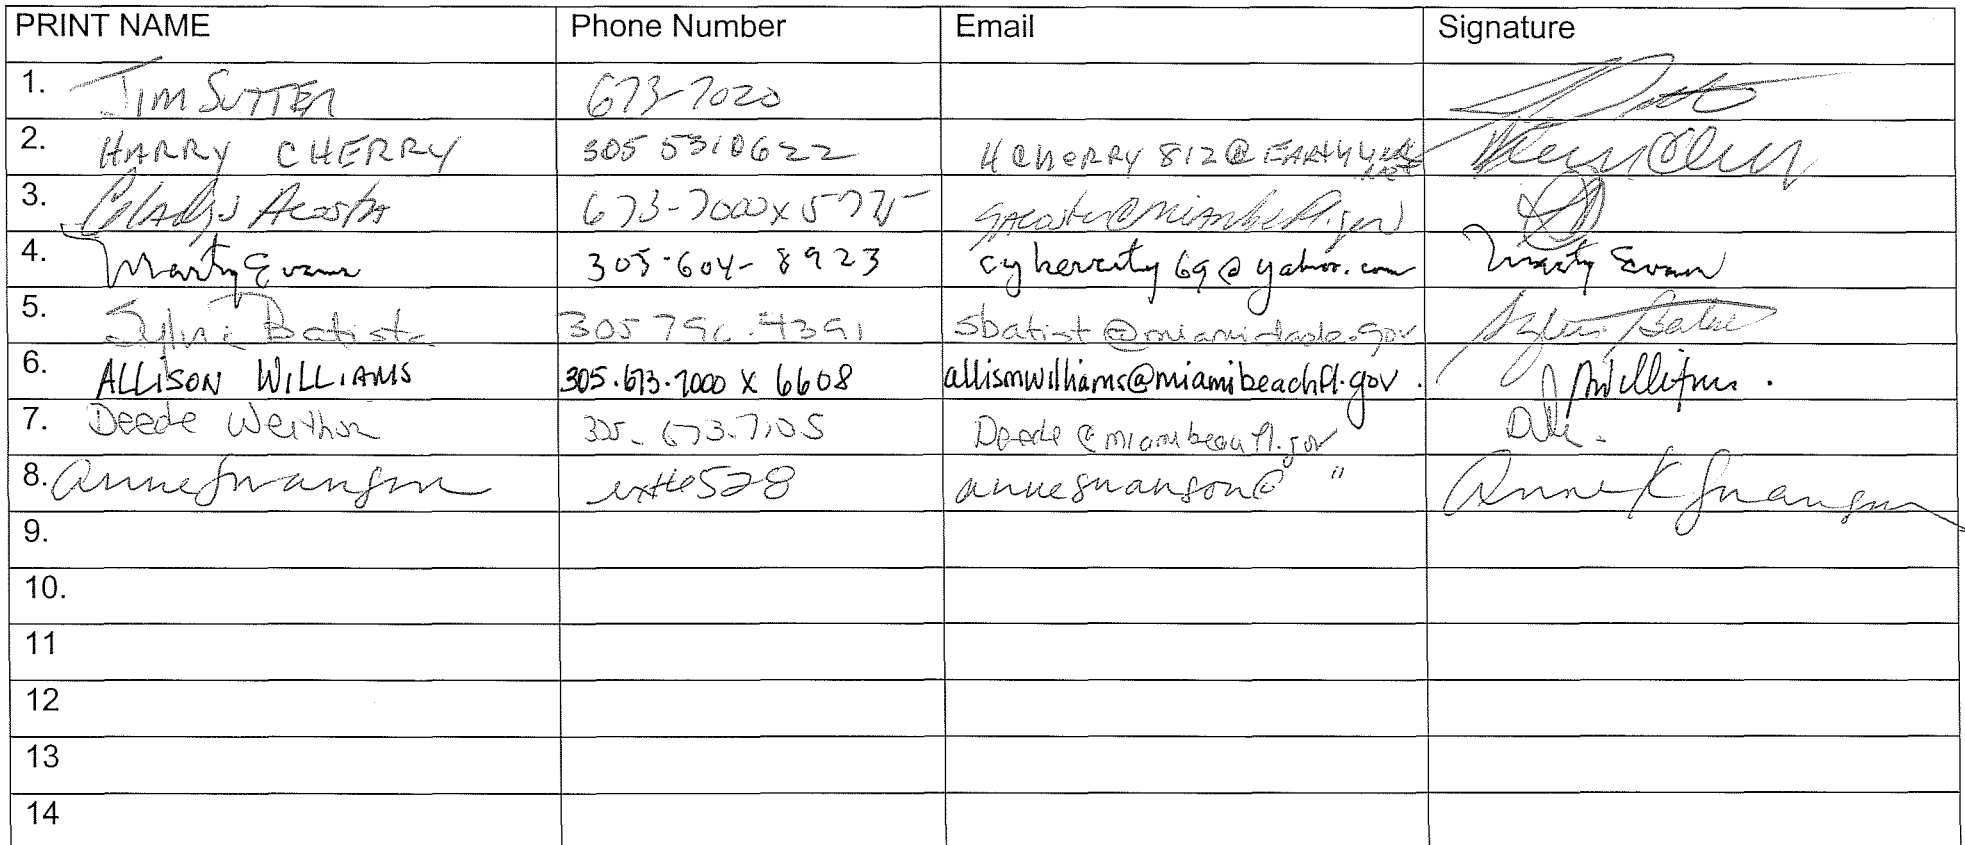 PRINT NAME Phone Number Email Signature
1. JIM SUTTER 673-7020
2. HARRY CHERRY 305 5310622 HCHERRY 812@EARTHLINK
NET
3. Gladys Acosta 673-7000x5775
4. Marty Evans 305-604-8923 cybercity69@yahoo.com Marty Evans
5. Sylvia Batista 305 796.4391 sbatist@miamidade.gov
6. ALLISON WILLIAMS 305.673.7000 X 6608 allisonwilliams@miamibeachfl.gov. AWilliams.
7. Deede Weithorn 305-673.7105 Deede@miamibeachfl.gov
8. Anne Swanson ext6528 anneswanson@ " Anne K Swanson
9.
10.
11
12
13
14